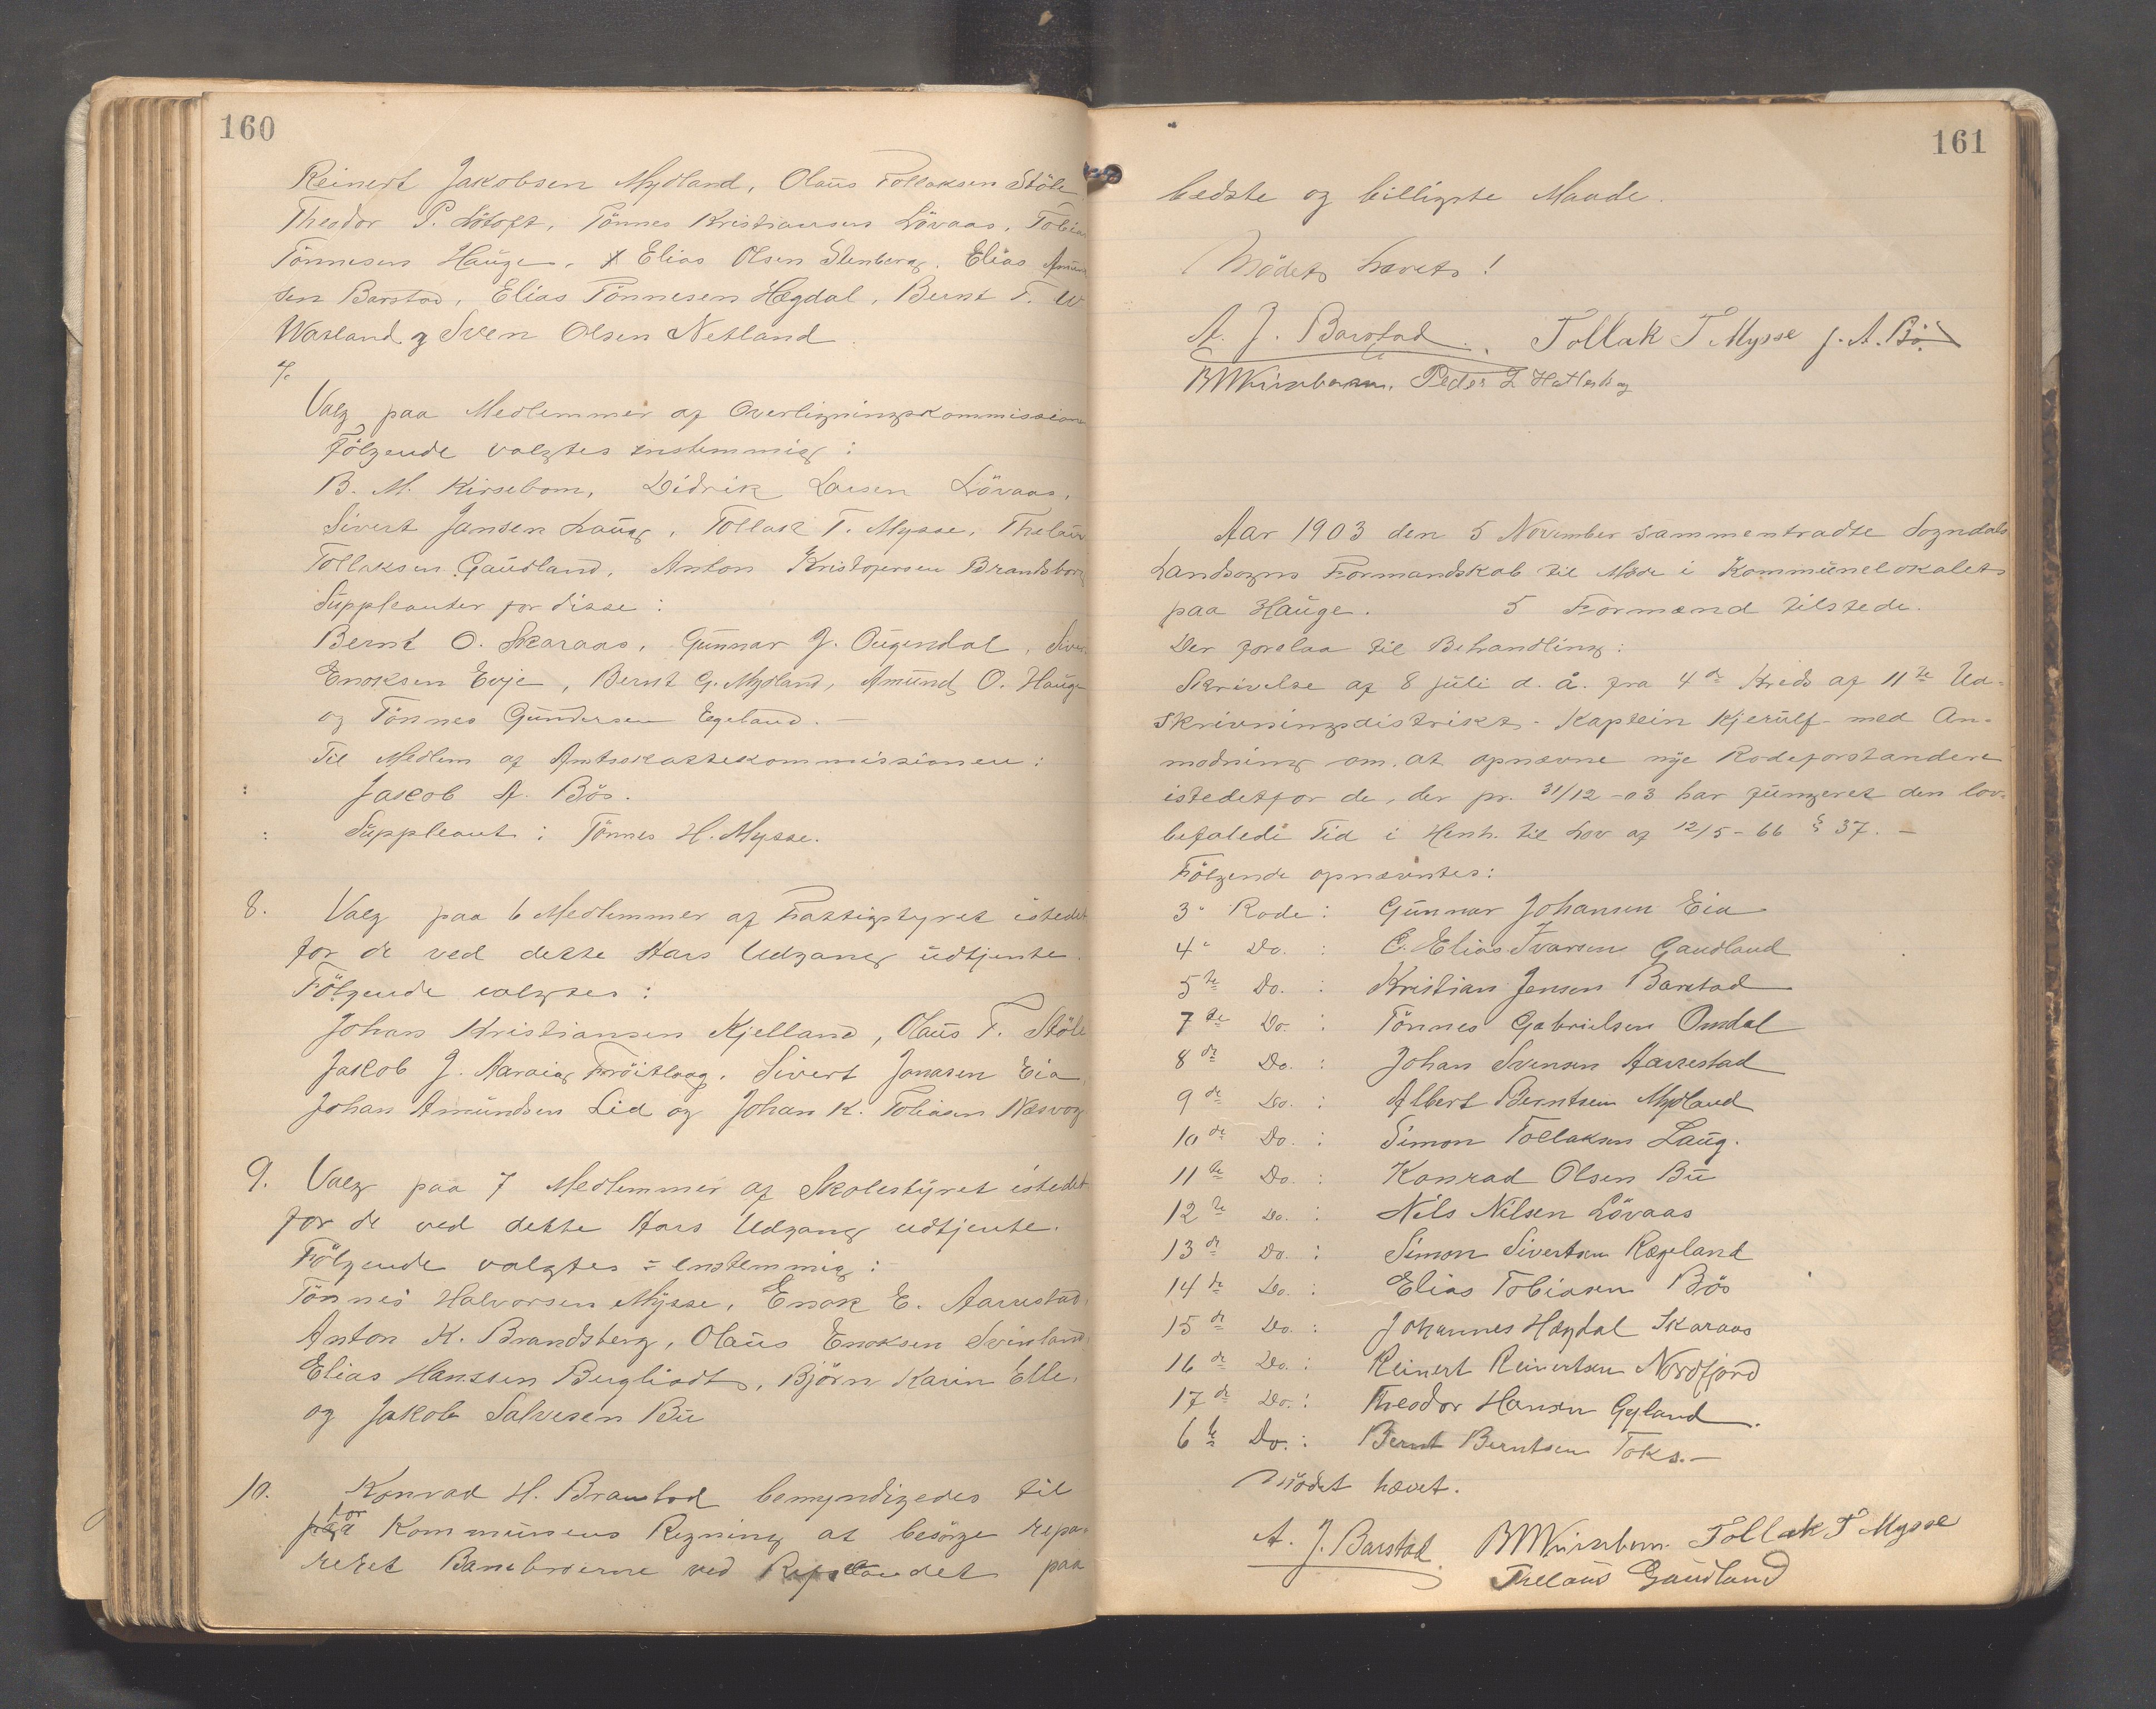 160
Reinert Jakobsen Mydland, Olaüs Tollaksen Stöle
Theodor P. Lötoft, Tönnes Kristiansen Lövaas, Tobias
Tönnesen Haüge, Elias Olsen Stenberg, Elias Amünd
sen Barstad, Elias Tönnesen Hegdal, Bernt T.
Watland og Sven Olsen Netland
7.
Valg paa Medlemmer af Overligningskommissionen
Fölgende valgtes enstemmig:
B. M. Kirsebom, Didrik Larsen Lövaas,
Sivert Jansen Laüg, Tollak T. Mysse, Thelaüs
Tollaksen Gaüdland, Anton Kristofersen Brandsberg
Süppleanter for disse:
Bernt O. Skaraas, Günnar J. Oügendal, Siver
Enoksen Evje, Bernt G. Mydland, Amünd O. Haüge
og Tönnes Gündersen Egeland. —
Til Medlem af Amtsskattekommissionen:
Jakob A. Bös.
Süppleant: Tönnes H. Mysse.
8. Valg paa 6 Medlemmer af Fattigstyret istedet
for de ved dette Aars Udgang üdtjente.
Fölgende valgtes:
Johan Kristiansen Kjelland, Olaüs T. Stöle
Jakob J. Fröitlog, Sivert Jonasen Eia,
Johan Amündsen Lid og Johan K. Tobiasen Næsvog
9. Valg paa 7 Medlemmer af Skolestyret istedet
for de ved dette Aars Udgang udtjente.
Fölgende valgtes = enstemmig:
Tönnes Halvorsen Mysse, Enok E. Aarrestad,
Anton K. Brandsberg, Olaüs Enoksen Svinland,
Elias Hanssen Bergliodt, Björn Karin Elle,
og Jakob Salvesen Bü
10. Konrad H. Braustad bemyndigedes til
for Kommünens Regning at besörge repa-
reret Baatebroerne ved paa
161
bedste og billigste Maade.
Mödets hævet!
A. J. Barstad. Tollak T Mysse J. A. Bö.
BMKirsebom. Peder L Hatleskog
Aar 1903 den 5 November sammentradte Sogndals
Landsogns Formandskab til Möde i Kommünelokalet
paa Haüge. 5 Formænd tilstede.
Der forelaa til Behandling:
Skrivelse af 8 jüli d. å. fra 4de Kreds af 11te Ud-
skrivningsdistrikt - Kaptein Kjerülf med An-
modning om at opnævne nye Rodeforstandere
istedetfor de, der pr. 31/12-03 har füngeret den lov-
befalede Tid i Henh. til Lov af 12/5-66 § 37. —
Fölgende opnævntes:
3. Rode: Günnar Johansen Eia
4. Do.: E. Elias Ivarsen Gaudland
5te Do.: Kristian Jensen Barstad
7de Do.: Tönnes Gabrielsen Omdal
8de Do.: Johan Svensen Aarrestad
9de Do.: Albert Berntsen Mydland
10de Do.: Simon Tollaksen Laüg.
11te Do.: Konrad Olsen Bü
12te Do.: Nils Nilsen Lövaas
13de Do.: Simon Sivertsen Rægeland
14de Do.: Elias Tobiasen Bös
15de Do.: Johannes Hægdal Skaraas
16de Do.: Reinert Reinertsen Nordfjord
17de Do.: Theodor Hansen Gyland.
6te Do.: Bernt Berntsen Toks. —
Mödet hævet.
A. J. Barstad. BMKirsebom. Tollak T Mysse
Thelaüs Gaüdland